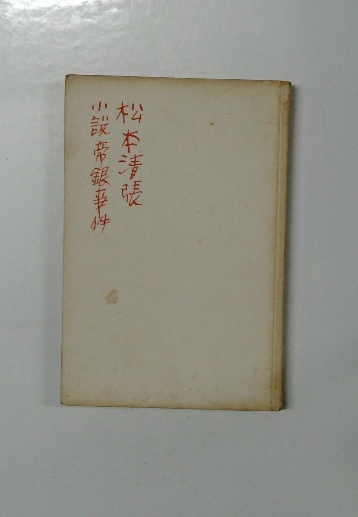 松本清張
小説帝銀事件